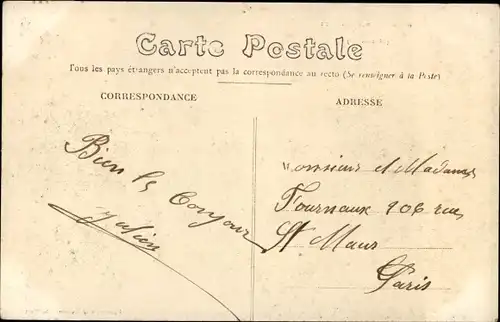 Carte Postale
Tous les pays étrangers n'acceptent pas la correspondance au recto (Se renseigner à la Poste)
CORRESPONDANCE
ADRESSE
Bien le Bonjour
Julien
Monsieur et Madame
Fournaux 106 rue
St Maur
Paris